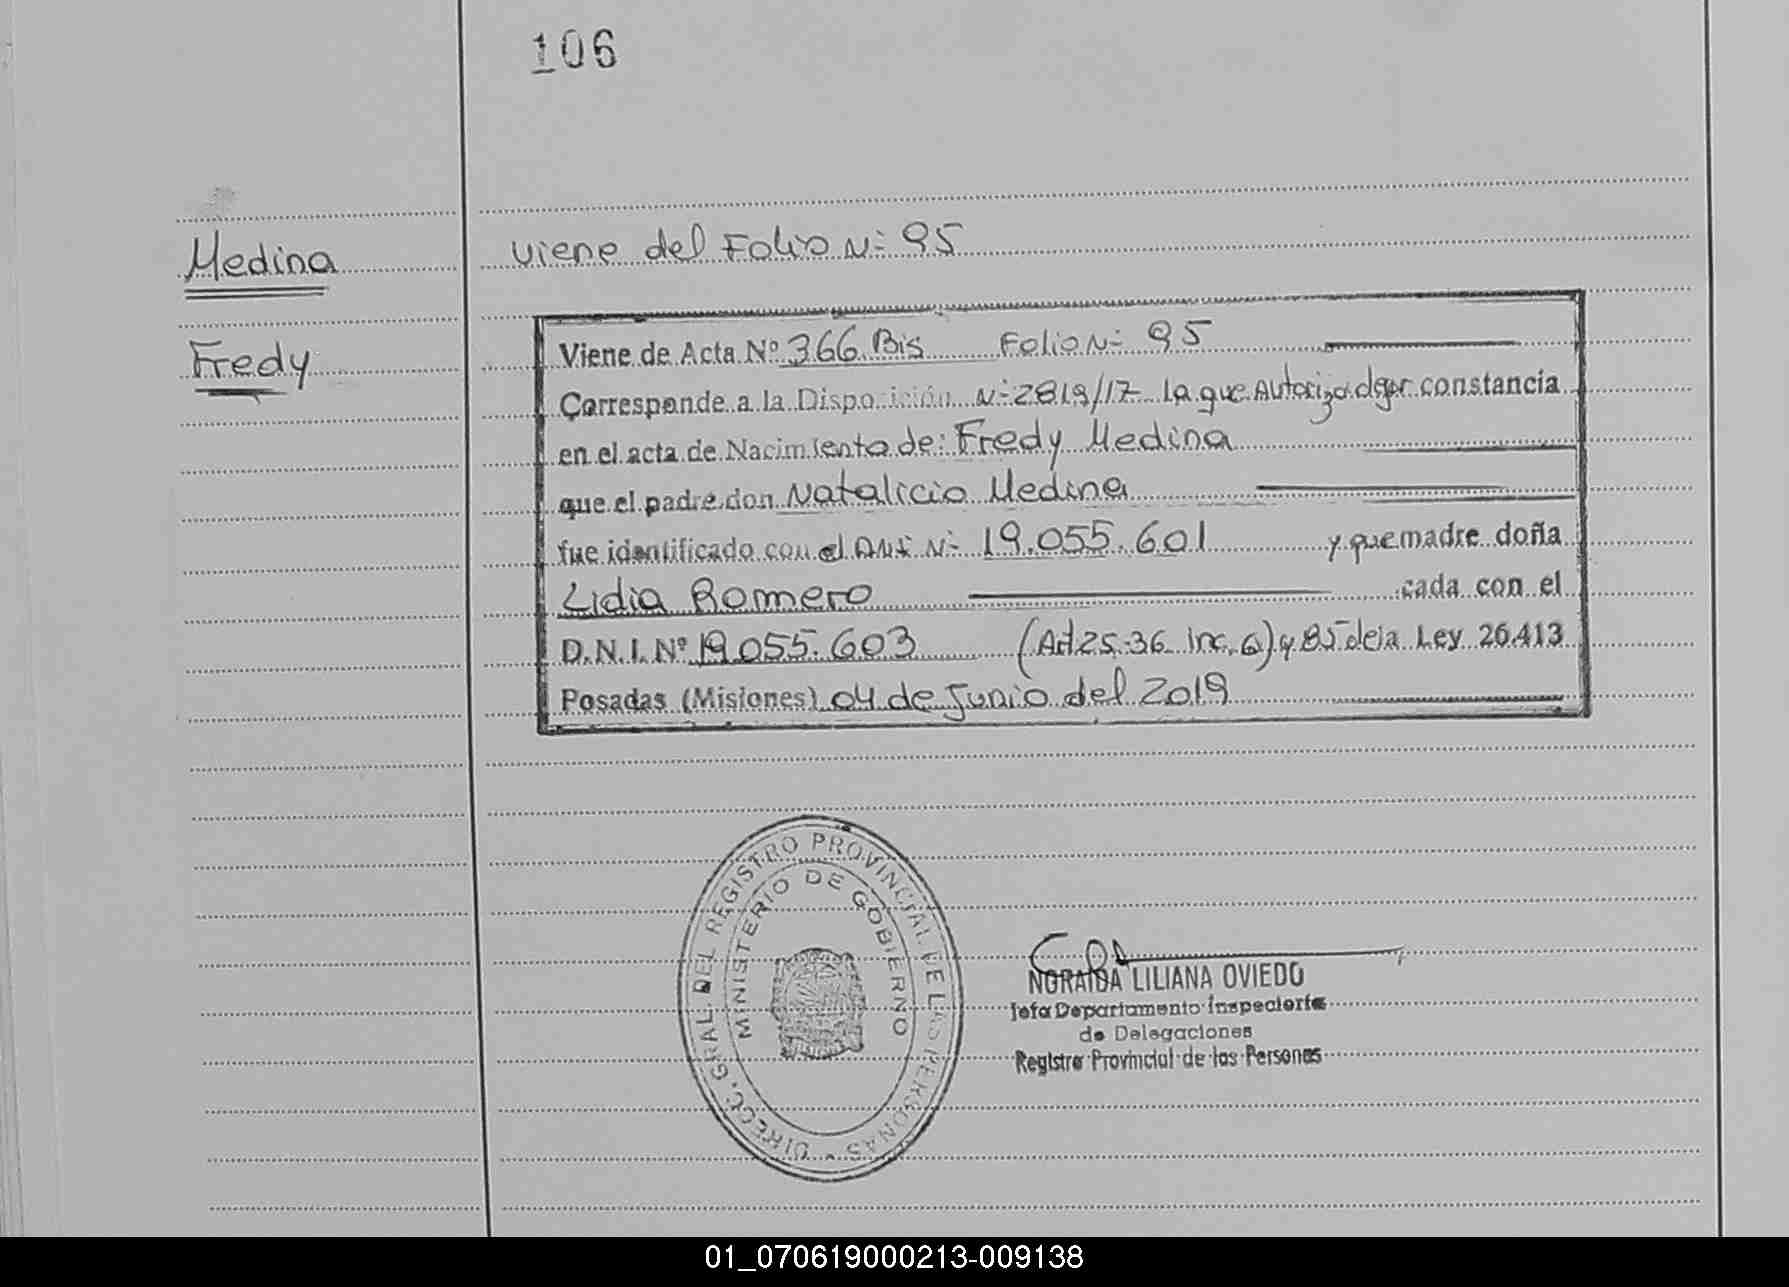 106
Medina
Fredy
viene del Folio N= 95
Viene de Acta Nº 366 Bis Folio N= 95
Corresponde a la Disposición N=2819/17 la que Autoriza dejar constancia
en el acta de Nacimiento de: Fredy Medina
que el padre don Natalicio Medina
fue identificado con el DNI N= 19.055.601 y que madre doña
Lidia Romero cada con el
D.N.I. Nº 19.055.603 (Art 25-36 inc. 6) y 85 de la Ley 26.413
Posadas (Misiones) 04 de Junio del 2019
DIRECC. GRAL DEL REGISTRO PROVINCIAL DE LAS PERSONAS
MINISTERIO DE GOBIERNO
LILIANA OVIEDO
Jefa Departamento Inspectoria
de Delegaciones
Registro Provincial de las Personas
01_070619000213-009138